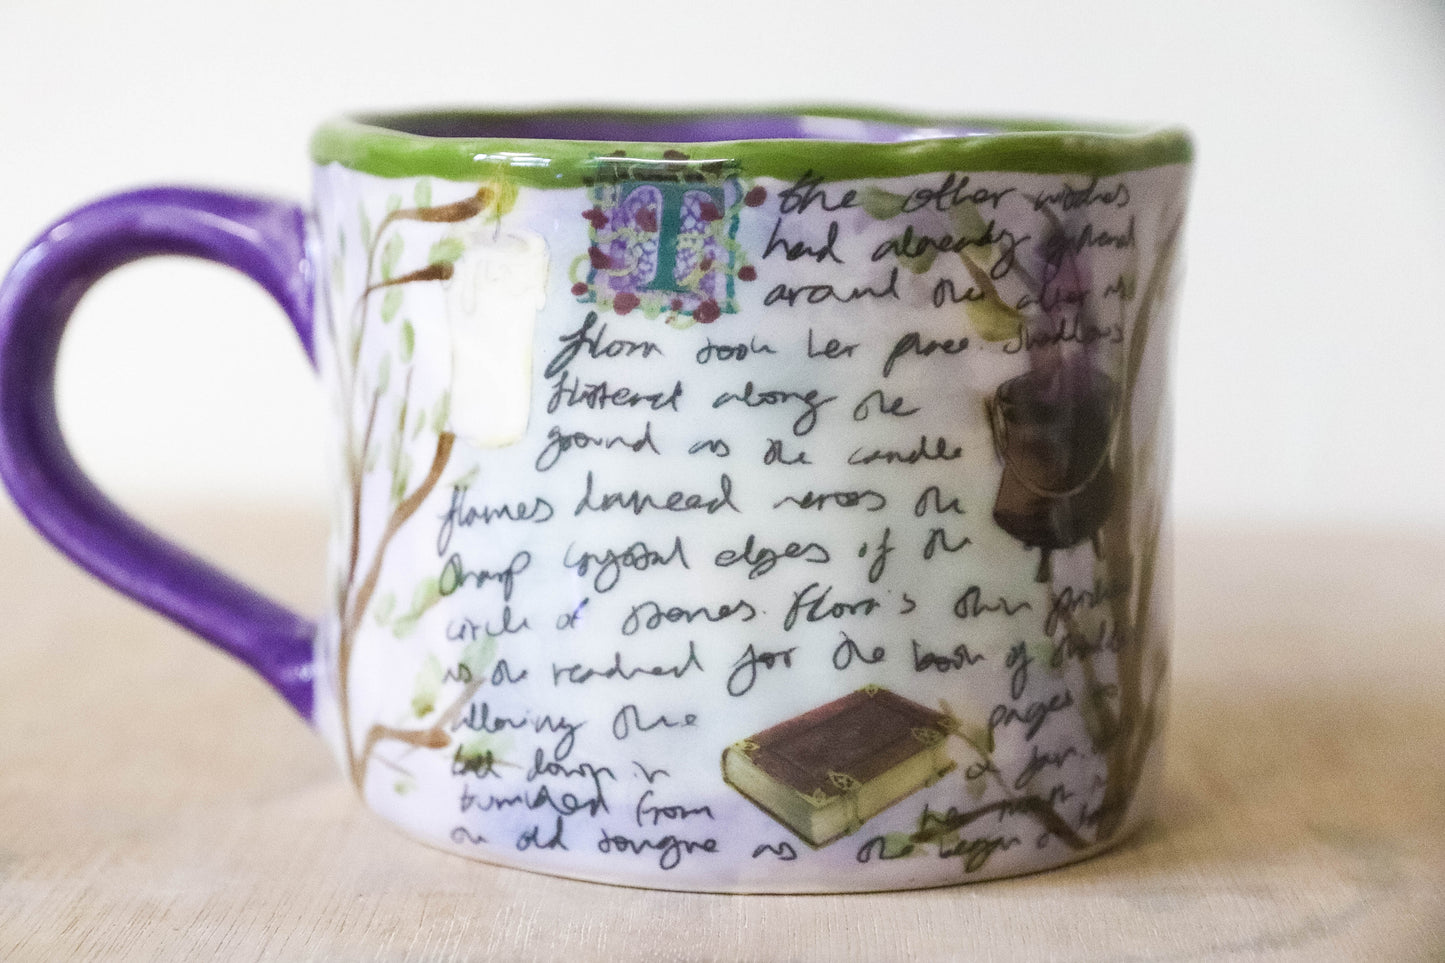 T the other witches
had already gathered
around the alter as
flora took her place. Shadows
flittered along the
ground as the candle
flames danced across the
sharp crystal edges of the
circle of stones. Flora's skin
as she reached for the book of
allowing the pages to
fall down in a
tumbled from
an old tongue as she began to